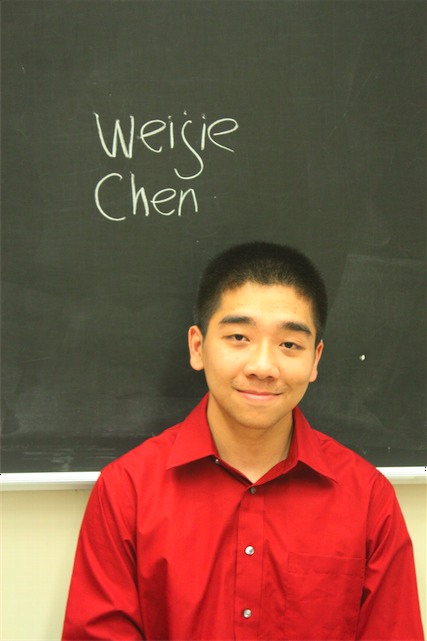 Weijie
Chen